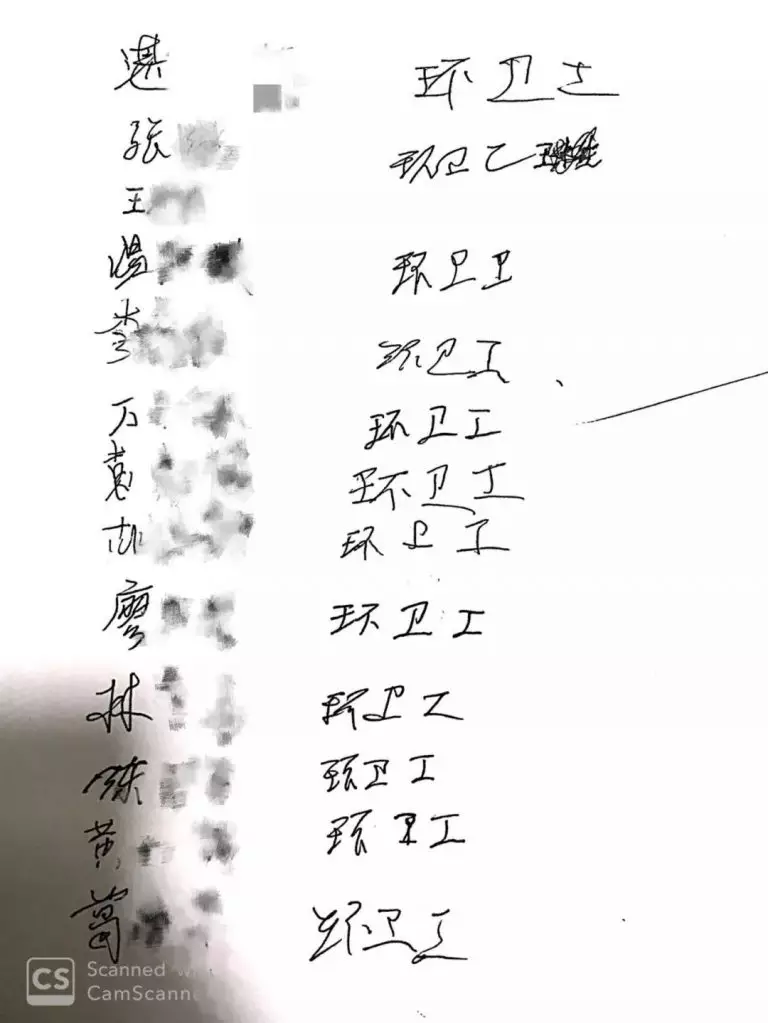 湛 环卫工
张 环卫工
王
温 环卫卫
李 环卫工
万 环卫工
袁 环卫工
胡 环卫工
廖 环卫工
林 环卫工
陈 环卫工
黄 环卫工
葛 环卫工
CS Scanned w
CamScanne